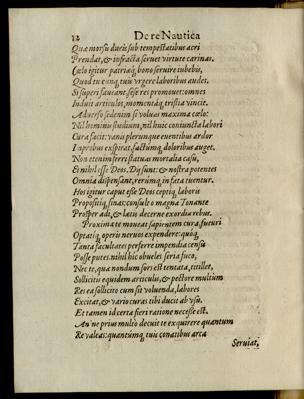 12 De re Nautica
Quæ morsu duris sub tempestatibus acri
Prendat, & infracta seruet virtute carinas.
Cœlo igitur patriæq; bono seruire iubebis,
Quod tu cunq; tuis vrgere laboribus audes.
Si superi faueant, sese res promouet: omnes
Induit articulos, momentáq; tristia vincit.
Aduerso sed enim si voluas maxima cœlo:
Nil hominis studium, nil huic coniuncta labori
Cura facit: vanis plerunque euentibus ardor
Improbus exspirat, factúmq; doloribus auget.
Non etenim ferri statuas mortalia casu,
Et nihil esse Deos, Dij sunt: & nostra potentes
Omnia dispensant, rerúmq; in fata tuentur.
Hos igitur caput esse Deos cœptiq; laboris
Propositiq; sinas: consulto magna Tonante
Prosper adi, & lætis decerne exordia rebus.
Proxima te moueat sapientem cura, futuri
Optatiq; operis neruos expendere: quóq;
Tanta facultates perferre impendia censu
Posse putes. nihil hic obueles seria fuco,
Nec te, qua nondum sors est tentata, titillet,
Sollicitus equidem articulis, & pectore multum
Res ea sollicito cum sit voluenda, labores
Excitat, & vario curas tibi ducit ab vsu.
Et tamen id certa fieri ratione necesse est.
An'ne prius multo decuit te exquirere quantum
Re valeas: quantúmq; tuis conatibus arca
Seruiat,